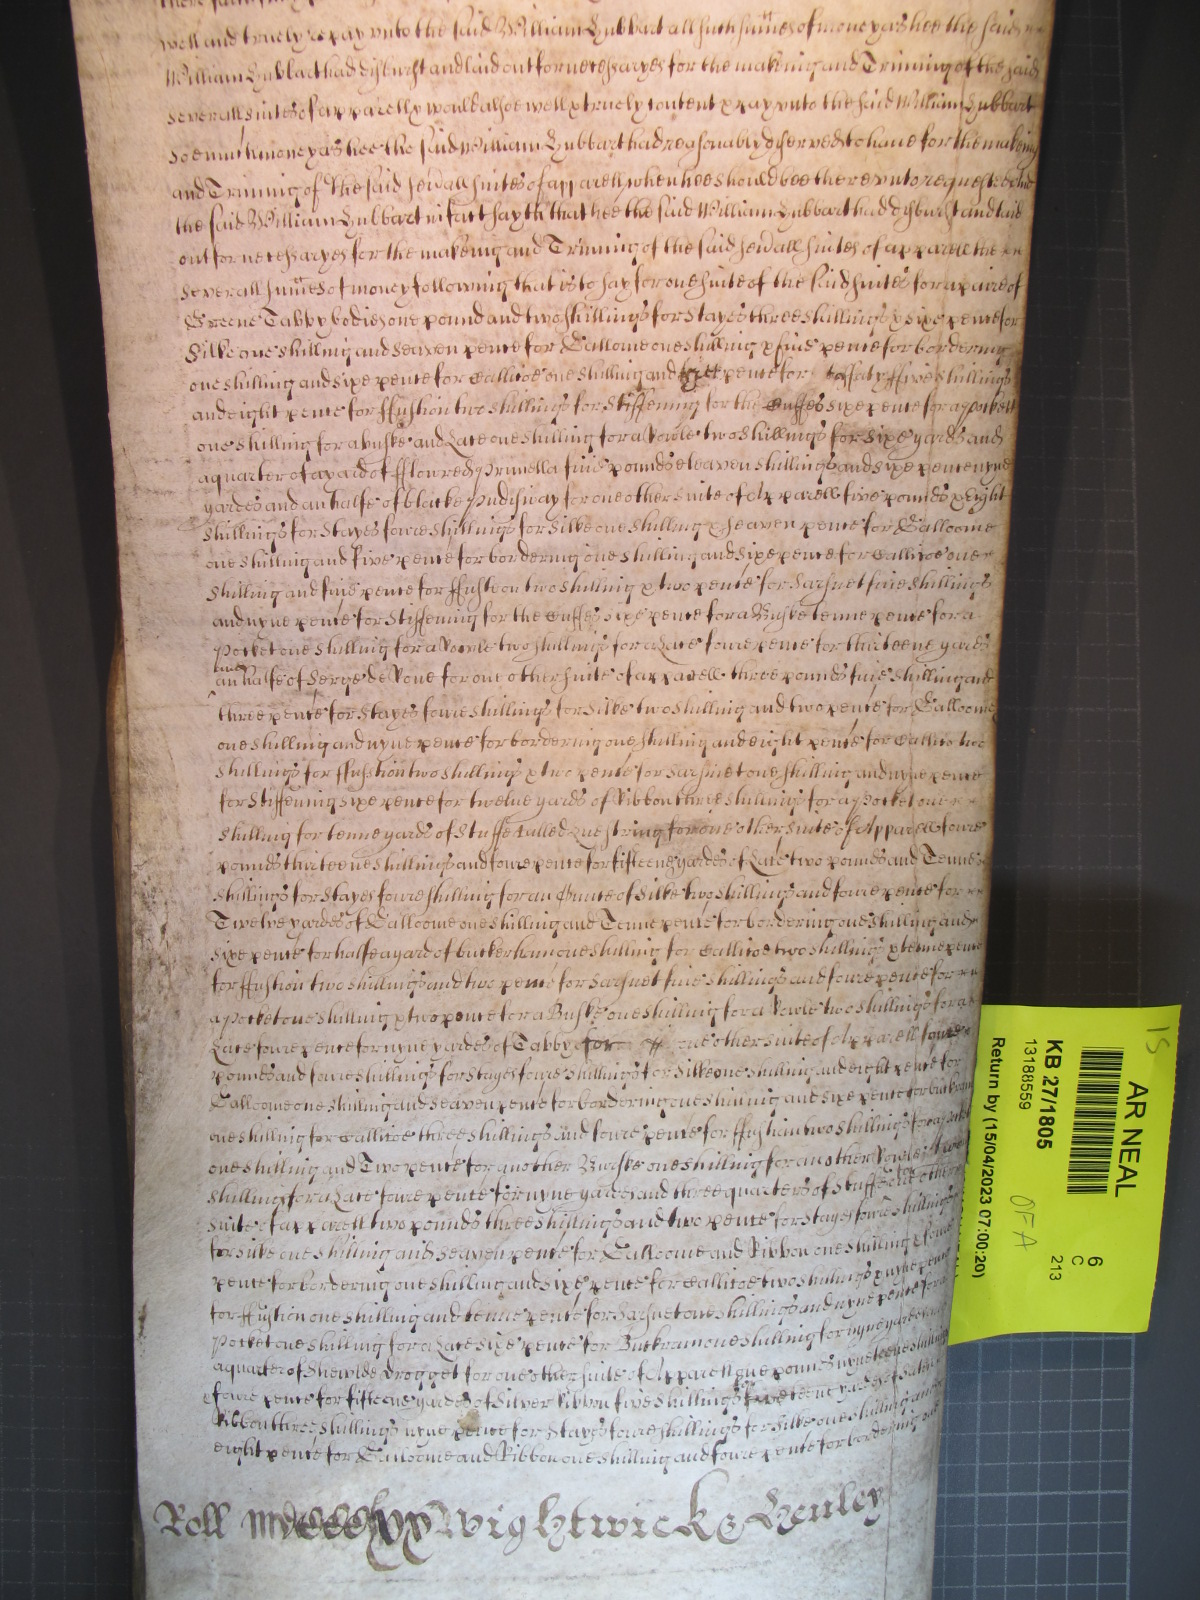 well and truely repay unto the said William Hubbart all such sumes of money as hee the said
William Hubbart had disburst and laid out for necessaryes for the making and Triming of the said
severall suites of apparell y would alsoe well & truely content & pay unto the said William Hubbart
soe much money as hee the said William Hubbart had reasonably deserved to have for the makeing
and Triming of the said severall suites of apparell when hee should bee thereunto requested And
the said William Hubbart in fact sayth that hee the said William Hubbart had disburst and laid
out for necessaryes for the makeing and Triming of the said severall suites of apparell the
severall sumes of money following that is to say for one suite of the said suites for a paire of
Greene Tabby bodies one pound and two shillings for Stayes three shillings & sixe pence for
Silke one shilling and seaven pence for Galloome one shilling & five pence for bordering
one shilling and sixe pence for Callicoe one shilling and pence for taffaty ffive shillings
and eight pence for ffustion two shillings for Stiffening for the Cuffes sixe pence for a pockett
one shilling for a buske and Lace one shilling for a Rowle two shillings for sixe yards and
a quarter of a yard of fflowred Prunella five pounds eleaven shillings and sixe pence nyne
yardes and an halfe of blacke Pudisway for one other suite of Apparell five pounds & Eight
shillings for Stayes foure shillings for silke one shilling & seaven pence for Galloome
one shilling and five pence for bordering one shilling and sixe pence for Callicoe one
shilling and five pence for ffustion two shilling & two pence for Sarsnet five shillings
and nyne pence for Stiffening for the Cuffes sixe pence for a Buske tenne pence for a
Pocket one shilling for a Rowle two shillings for a Lace foure pence for thirteene yards
and
an halfe of Serge de Rone for one other suite of apparell three pounds five shilling and
three pence for Stayes foure shillings for silke two shilling and two pence for Galloome
one shilling and nyne pence for bordering one shilling and eight pence for Callico two
shillings for ffustion two shillings & two pence for Sarsnet one shilling and nyne pence
for Stiffening sixe pence for twelve yards of Ribbon three shillings for a Pocket one
shilling for tenne yards of Stuffe called Lue string for one other suite of Apparell foure
pounds thirteene shillings and foure pence for fifteene yardes of Lace two pounds and Tenne
shillings for Stayes foure shilling for an Ounce of Silke two shillings and foure pence for
Twelve yardes of Galloome one shilling and Tenne pence for bordering one shilling and
sixe pence for halfe a yard of buckerham one shilling for Callicoe two shillings & tenne pence
for ffustion two shillings and two pence for Sarsnet five shillings and foure pence for
a Pocket one shilling & two pence for a Buske one shilling for a Rowle two shillings for a
Lace foure pence for nyne yardes of Tabby for one other suite of Apparell foure
Pounds and foure shillings for Stayes foure shillings for Silke one shilling and eight pence for
Galloome one shilling and seaven pence for bordering one shilling and sixe pence for buckram
one shilling for Callicoe three shillings and foure pence for ffustian two shillings for a pocket
one shilling and Two pence for another Buske one shilling for another Rowle two
shillings for a Lace foure pence for nyne yardes and three quarters of Stuffe for one other
suite of apparell two pounds three shillings and two pence for Stayes foure shillings
for silke one shilling and seaven pence for Galloome and Ribbon one shilling & foure
pence for bordering one shilling and sixe pence for Callicoe two shillings & nyne pence
for ffustion one shilling and tenne pence for Sarsnet one shilling and nyne pence for a
Pocket one shilling for a Lace sixe pence for Buckram one shilling for nyne yardes and
a quarter of Drogget for one other suite of Apparell one pound nyneteene shillings
& foure pence for fifteene yardes of Silver Ribbon five shillings yards of Satten
Ribbon three shillings nyne pence for Stays foure shillings for Silke one shilling and
eight pence for Galloome and Ribbon one shilling and foure pence for bordering one
Roll Wightwicke & Henley
15
AR NEAL
6
C
213
KB 27/1805
13188559
OFA
Return by (15/04/2023 07:00:20)